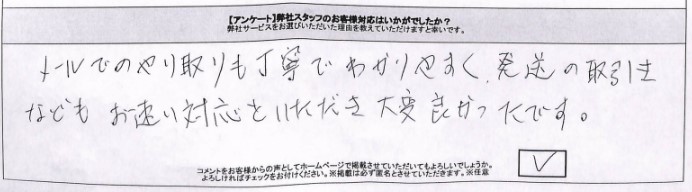 【アンケート】弊社スタッフのお客様対応はいかがでしたか?
弊社サービスをお選びいただいた理由を教えていただけますと幸いです。
メールでのやり取りも丁寧でわかりやすく、発送の取引き
なども お速い対応といただき 大変良かったです。
コメントをお客様からの声としてホームページで掲載させていただいてもよろしいでしょうか。
よろしければチェックをお付けください。※掲載は必ず匿名とさせていただきます。※任意